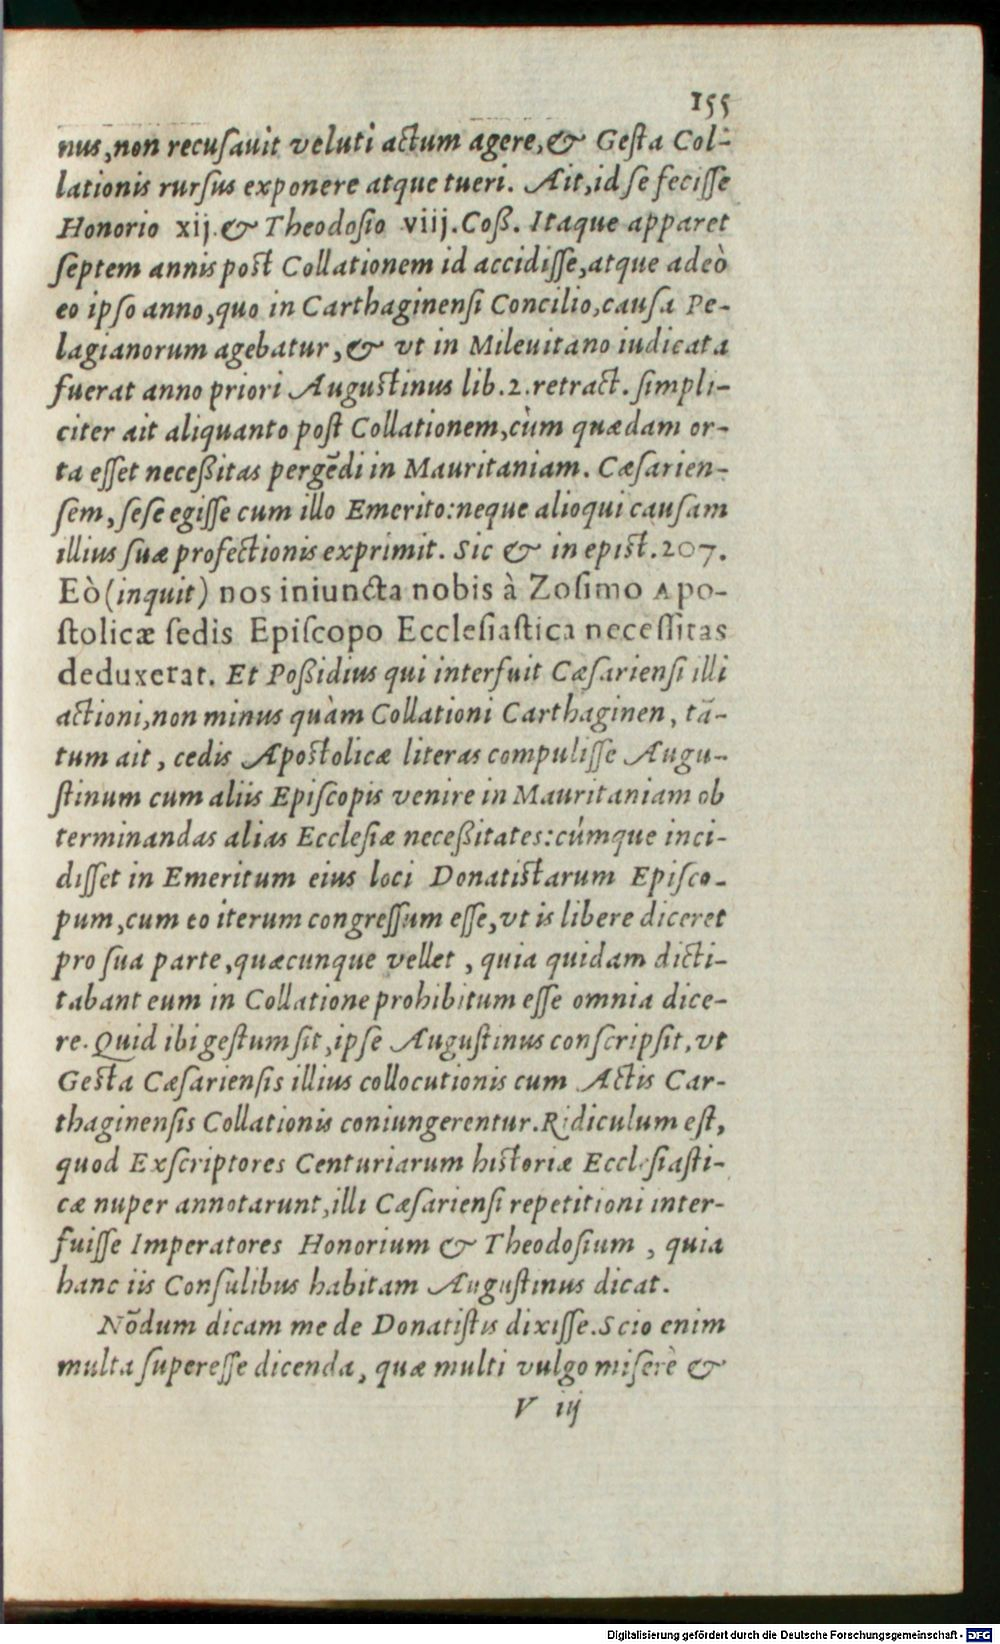 155
nus, non recusauit veluti actum agere, & Gesta Col-
lationis rursus exponere atque tueri. Ait, id se fecisse
Honorio xij. & Theodosio viij. Coß. Itaque apparet
septem annis post Collationem id accidisse, atque adeò
eo ipso anno, quo in Carthaginensi Concilio, causa Pe-
lagianorum agebatur, & vt in Mileuitano iudicata
fuerat anno priori Augustinus lib. 2. retract. simpli-
citer ait aliquanto post Collationem, cùm quædam or-
ta esset neceßitas pergēdi in Mauritaniam. Cæsarien-
sem, sese egisse cum illo Emerito: neque alioqui causam
illius suæ profectionis exprimit. Sic & in epist. 207.
Eò (inquit) nos iniuncta nobis à Zosimo Apo-
stolicæ sedis Episcopo Ecclesiastica necessitas
deduxerat. Et Poßidius qui interfuit Cæsariensi illi
actioni, non minus quàm Collationi Carthaginen, tā-
tum ait, cedis Apostolicæ literas compulisse Augu-
stinum cum aliis Episcopis venire in Mauritaniam ob
terminandas alias Ecclesiæ neceßitates: cúmque inci-
disset in Emeritum eius loci Donatistarum Episco-
pum, cum eo iterum congressum esse, vt is libere diceret
pro sua parte, quæcunque vellet, quia quidam dicti-
tabant eum in Collatione prohibitum esse omnia dice-
re. Quid ibi gestum sit, ipse Augustinus conscripsit, vt
Gesta Cæsariensis illius collocutionis cum Actis Car-
thaginensis Collationis coniungerentur. Ridiculum est,
quod Exscriptores Centuriarum historiæ Ecclesiasti-
cæ nuper annotarunt, illi Cæsariensi repetitioni inter-
fuisse Imperatores Honorium & Theodosium, quia
hanc iis Consulibus habitam Augustinus dicat.
Nōdum dicam me de Donatistis dixisse. Scio enim
multa superesse dicenda, quæ multi vulgo miserè &
V iij
Digitalisierung gefördert durch die Deutsche Forschungsgemeinschaft - DFG